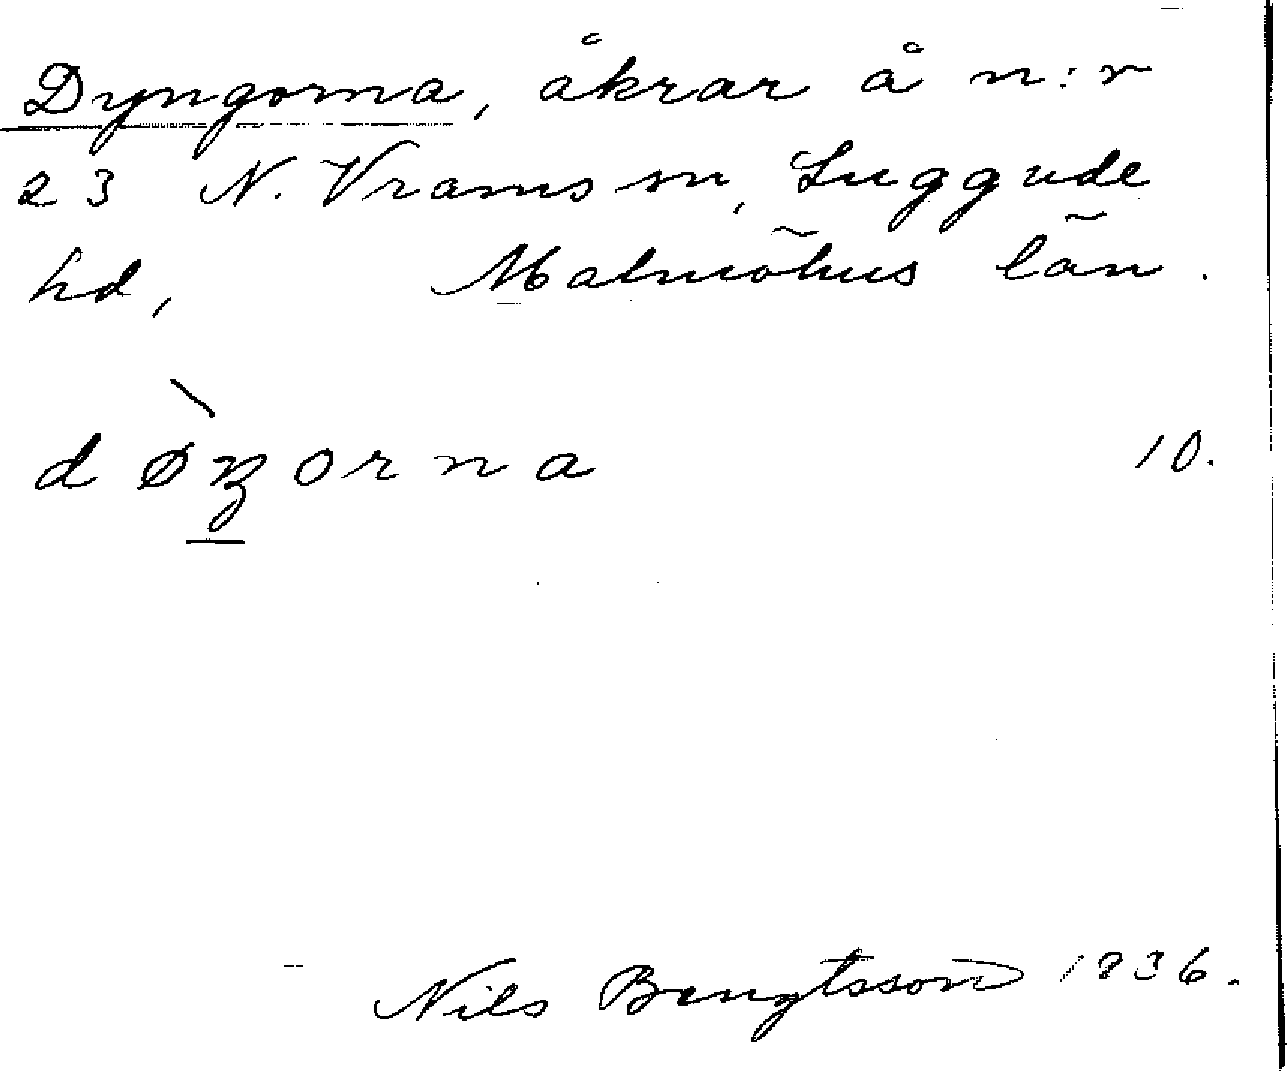 Dyngorna, åkrar å n:r
23 N. Vrams sn, Luggude
hd, Malmöhus län.
dø̀ŋorna 10.
Nils Bengtsson 1936.